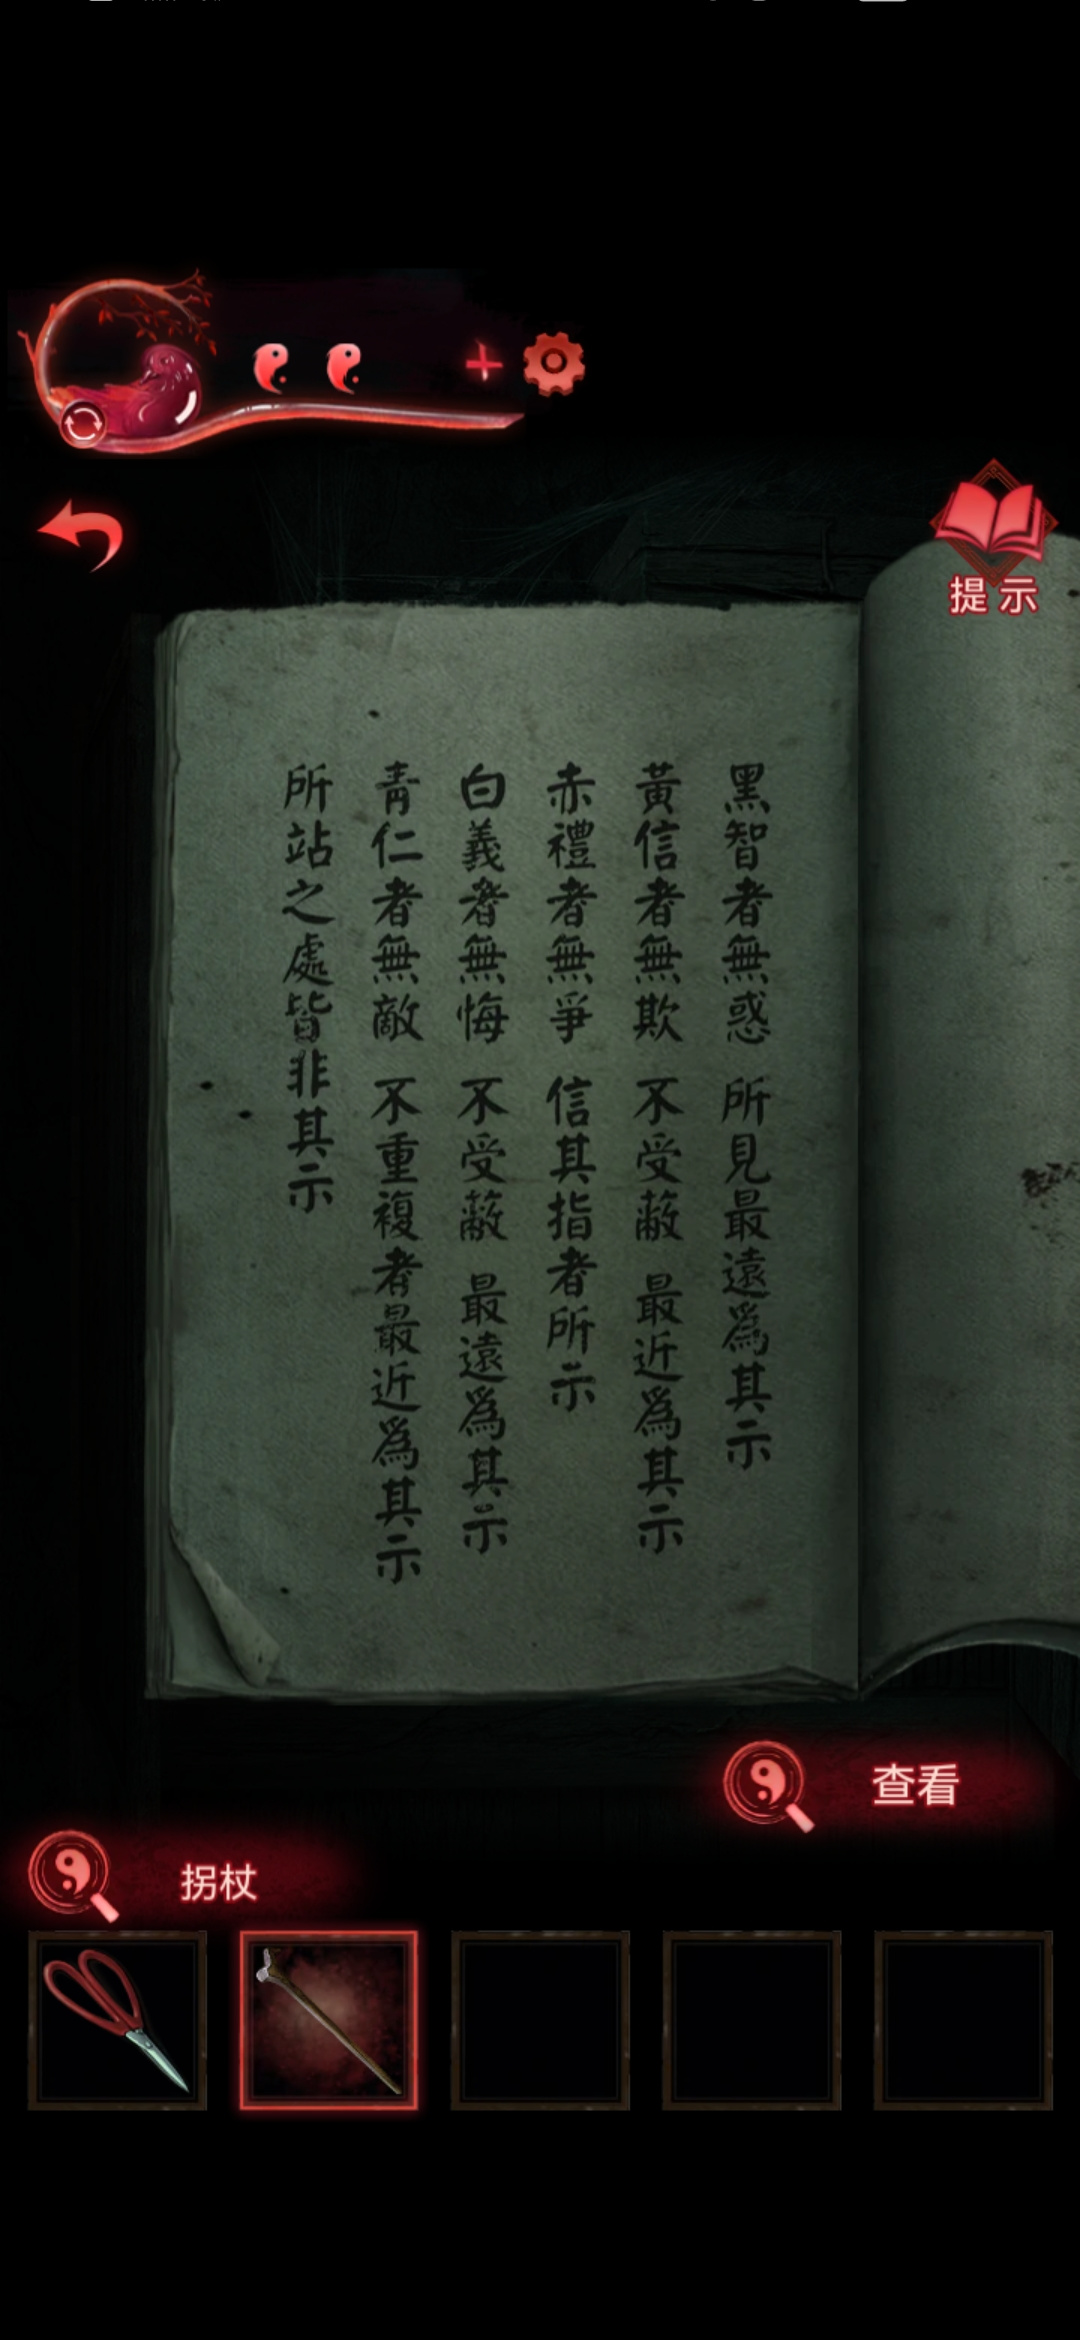 提示
黑智者無惑 所見最遠為其示
黃信者無欺 不受蔽 最近為其示
赤禮者無爭 信其指者所示
白義者無悔 不受蔽 最遠為其示
青仁者無敵 不重複者最近為其示
所站之處皆非其示
查看
拐杖